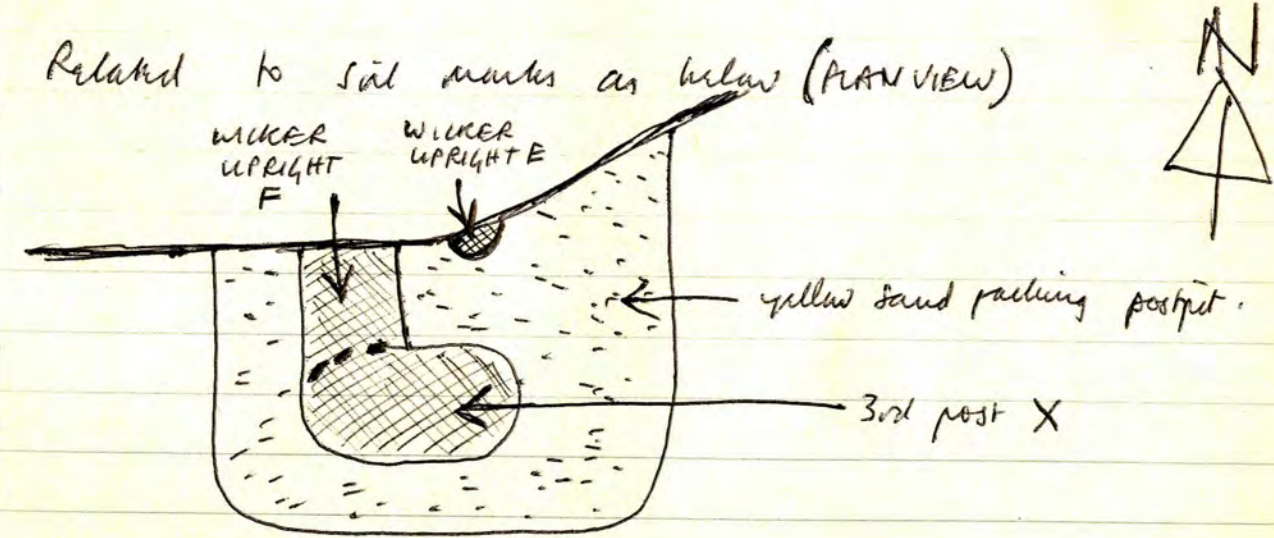 N
Related to soil marks as below (PLAN VIEW)
WICKER UPRIGHT F
WICKER UPRIGHT E
yellow sand packing postpit.
3rd post X